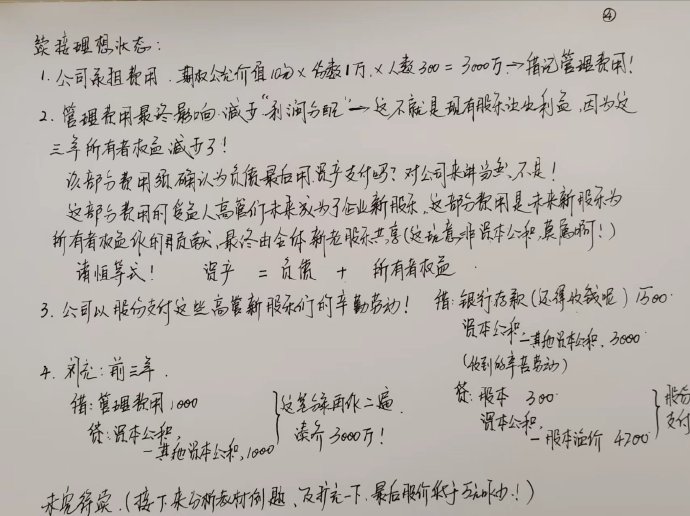 ④
续接理想状态：
1. 公司承担费用. 期权公允价值10元×份数1万×人数300 = 3000万→借记管理费用！
2. 管理费用最终影响减少"利润分配"—这不就是现有股东让出利益，因为这
三年所有者权益减少了！
该部分费用须确认为负债最后用资产支付吗？对公司来讲当然不是！
这部分费用的受益人高管们未来成为了企业新股东，这部分费用是未来新股东为
所有者权益作的贡献，最终由全体新老股东共享（这玩意非资本公积莫属啊！）
请恒等式！ 资产 = 负债 + 所有者权益
3. 公司以股份支付这些高管新股东们的辛勤劳动！
借：银行存款（还得收钱呢）1500
资本公积—其他资本公积，3000
（收到的辛苦劳动）
贷：股本 300
资本公积，—股本溢价 4200
股份支付
4. 补充：前三年.
借：管理费用1000
贷：资本公积，—其他资本公积，1000
这笔分录再作二遍
凑齐3000万！
未完待续.（接下来分析教材例题，及扩充一下，最后股价低于5元咋办！）